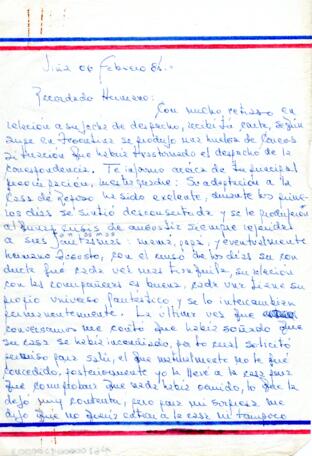 Viña 06 Febrero 86.-
Recordado Hermano:
Con mucho retraso en
relación a su fecha de despacho, recibí tu carta, según
supe en Argentina se produjo una huelga de
situación que había trastornado el despacho de la
correspondencia. Te informo acerca de tu principal
preocupación, nuestra madre: Su adaptación a la
Casa de Reposo ha sido excelente, durante los prime-
ros días se sintió desconcertada y se le produjeron
algunas crisis de angustia siempre referidas
a sus fantasmas: mamá, papá, y eventualmente
hermano Augusto, con el curso de los días su con
ducta fue cada vez más tranquila, su relación
con las compañeras es buena, cada una tiene su
propio universo fantástico y se lo intercambian
permanentemente. La última vez que
conversamos me contó que había soñado que
su casa se había incendiado, por lo cual solicitó
permiso para salir, el que naturalmente no le fue
concedido, posteriormente yo la llevé a la casa para
que comprobara que nada había ocurrido, lo que la
dejó muy contenta, pero para mi sorpresa me
dijo que no quería entrar a la casa ni tampoco